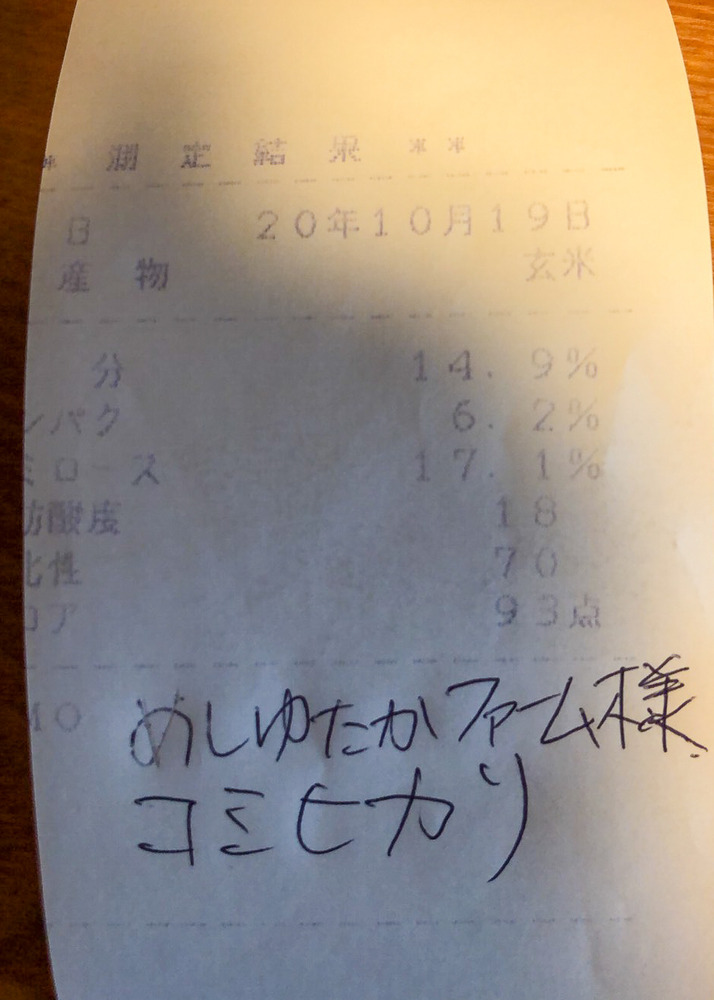 * 測定結果 **
日 20年10月19日
産物 玄米
分 14.9%
ンパク 6.2%
ミロース 17.1%
肪酸度 18
化性 70
コア 93点
めしゆたかファーム様
コミヒカリ